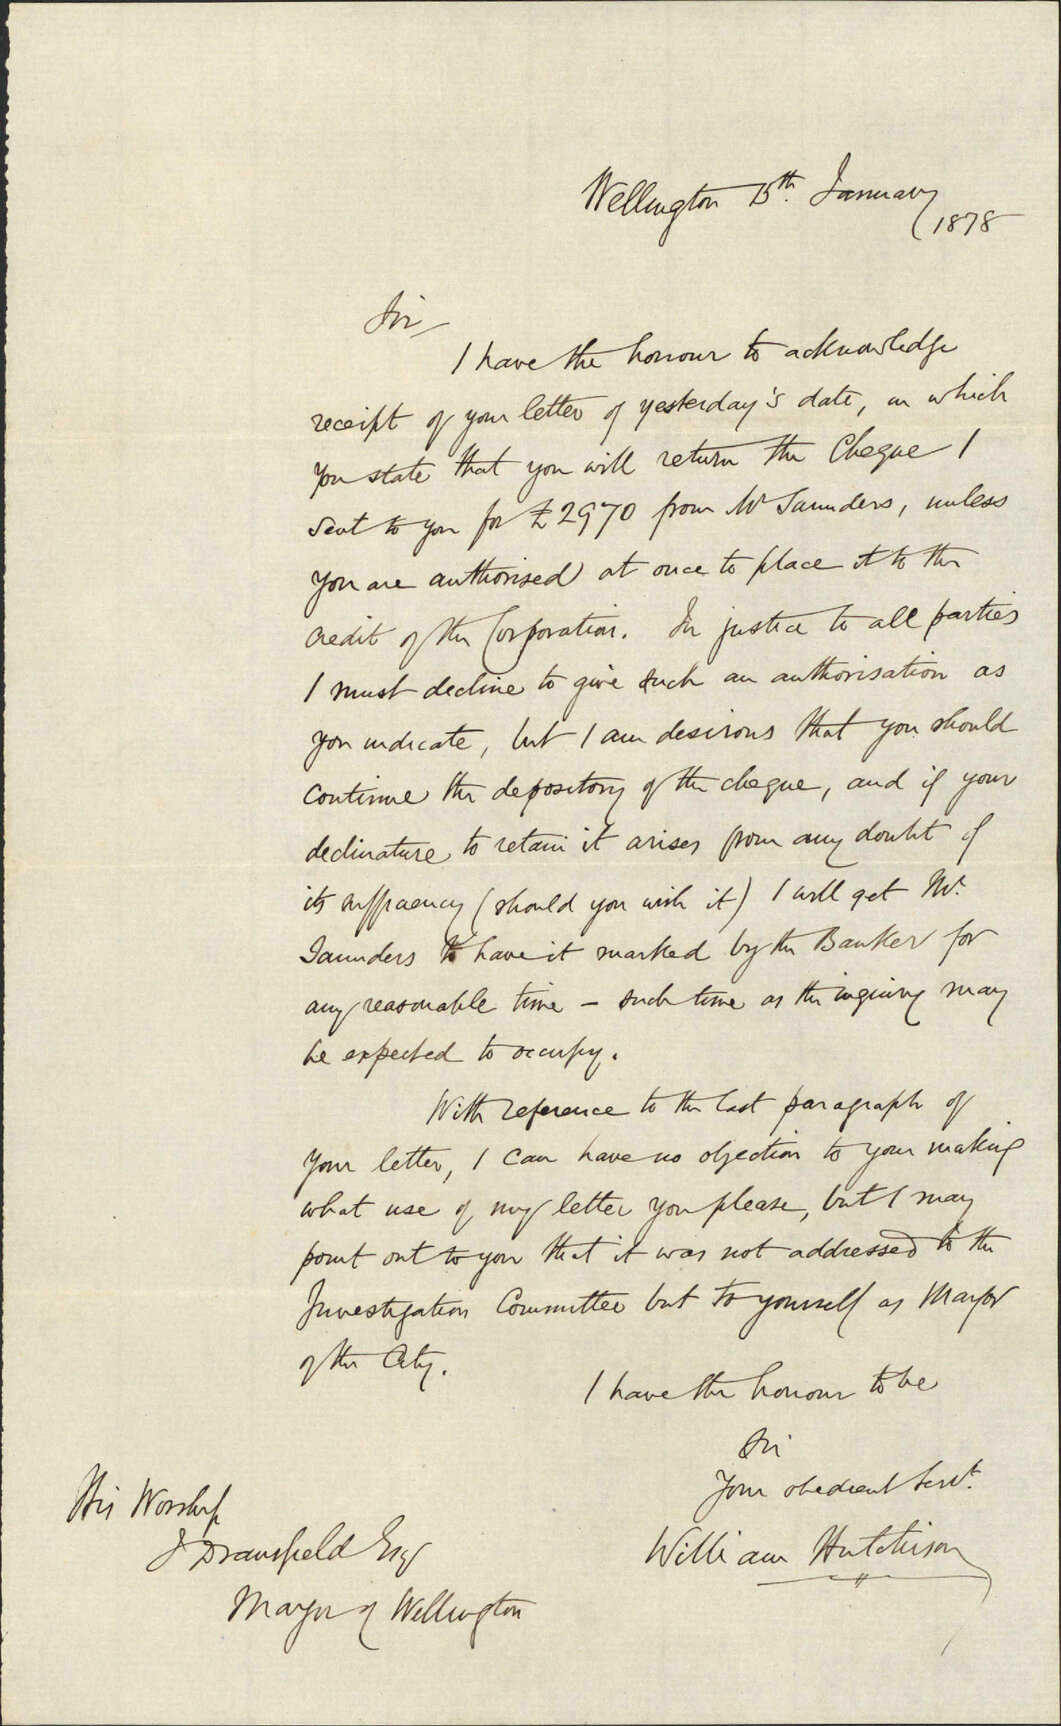 Wellington 15th. January
1878
Sir
I have the honour to acknowledge
receipt of your letter of yesterday's date, in which
you state that you will return the Cheque I
sent to you for £2970 from Mr Saunders, unless
you are authorised at once to place it to the
credit of the Corporation. In justice to all parties
I must decline to give such an authorisation as
you indicate, but I am desirous that you should
continue the depository of the cheque, and if your
declinature to retain it arises from any doubt of
its sufficiency (should you wish it) I will get Mr.
Saunders to have it marked by the Banker for
any reasonable time – such time as the inquiry may
be expected to occupy.
With reference to the last paragraph of
your letter, I can have no objection to your making
what use of my letter you please, but I may
point out to you that it was not addressed to the
Investigation Committee but to yourself as Mayor
of the City.
I have the honour to be
Sir
Your obedient Servt.
William Hutchison
His Worship
J Dransfield Esq
Mayor of Wellington